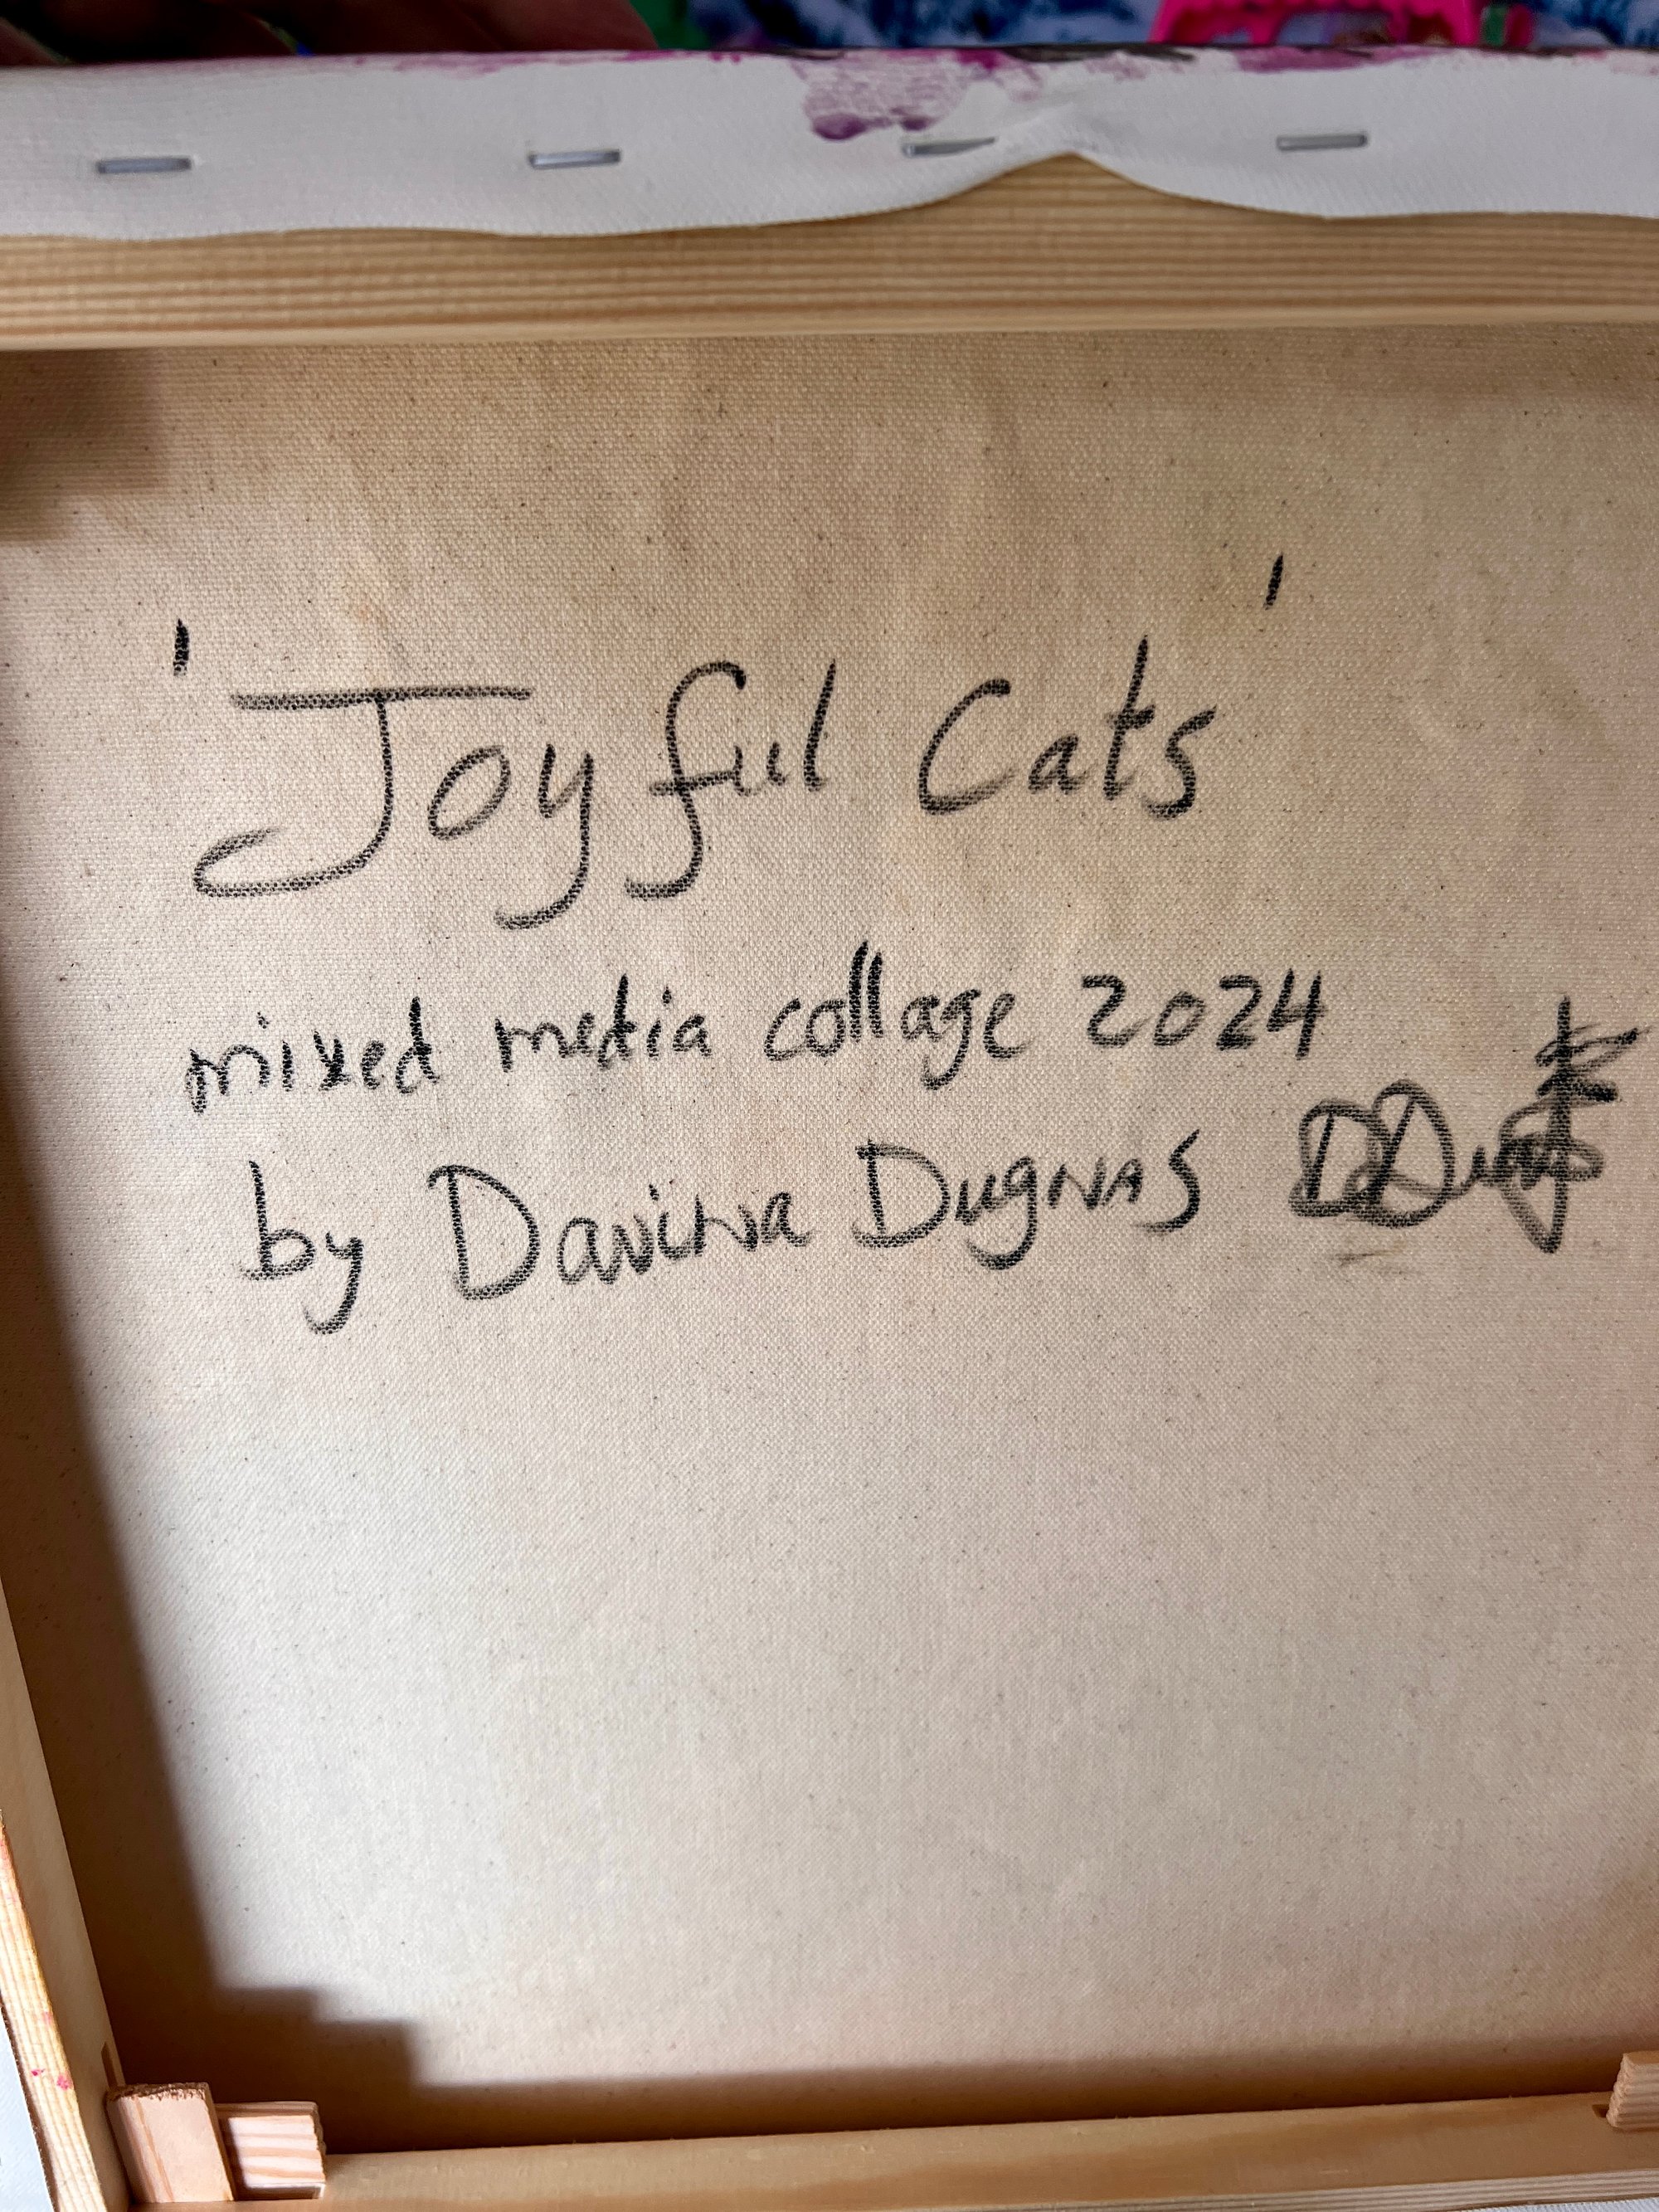 'Joyful Cats'
mixed media collage 2024
by Davina DugNAS